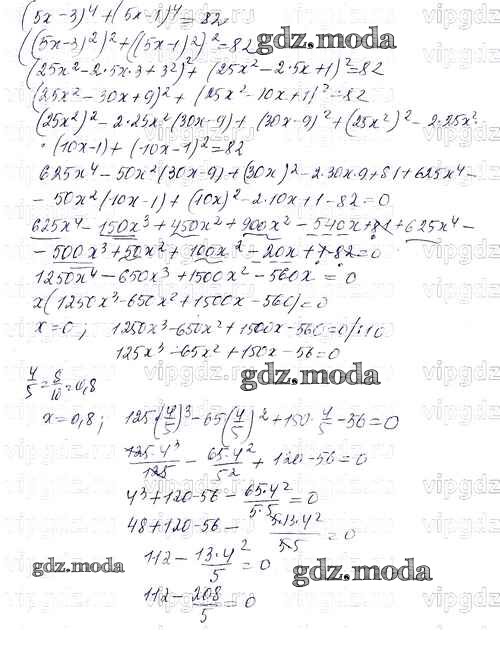 (5x-3)⁴+(5x-1)⁴=82
((5x-3)²)²+((5x-1)²)²=82
(25x²-2·5x·3+3²)²+(25x²-2·5x+1)²=82
(25x²-30x+9)²+(25x²-10x+1)²=82
(25x²)²-2·25x²(30x-9)+(30x-9)²+(25x²)²-2·25x²·
·(10x-1)+(10x-1)²=82
625x⁴-50x²(30x-9)+(30x)²-2·30x·9+81+625x⁴-
-50x²(10x-1)+(10x)²-2·10x+1-82=0
625x⁴-150x³+450x²+900x²-540x+81+625x⁴-
-500x³+50x²+100x²-20x+1-82=0
1250x⁴-650x³+1500x²-560x=0
x(1250x³-650x²+1500x-560)=0
x=0; 1250x³-650x²+1500x-560=0/:10
125x³-65x²+150x-56=0
4/5=8/10=0,8
x=0,8; 125·(4/5)³-65(4/5)²+150·4/5-56=0
125·4³/125-65·4²/5²+120-56=0
4³+120-56-65·4²/5·5=0
48+120-56-5·13·4²/5·5=0
112-13·4²/5=0
112-208/5=0
gdz.moda
gdz.moda
gdz.moda
gdz.moda
vipgdz.ru